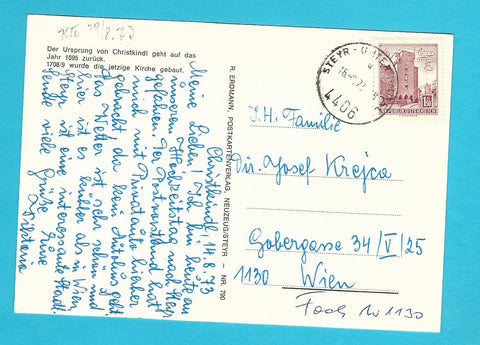 29/8.73
Der Ursprung von Christkindl geht auf das
Jahr 1695 zurück.
1708/9 wurde die jetzige Kirche gebaut.
Christkindl, 14.8.73
Meine Lieben! Ich bin heute an
unserem Hochzeitstag nach Steyr
gefahren. Der Postvorstand hat
mich mit Privatauto hierher
gebracht, da kein Autobus geht.
Das Wetter ist sehr schön und
hier ist es kühler als in Wien.
Steyr ist eine interessante Stadt.
Sende viele Grüße Eure
R. ERDMANN, POSTKARTENVERLAG, NEUZEUG/STEYR – NR. 790
STEYR
4406
REPUBLIK ÖSTERREICH
Familie
Dir. Josef Krejca
Gobergasse 34/V/25
1130 Wien
1130